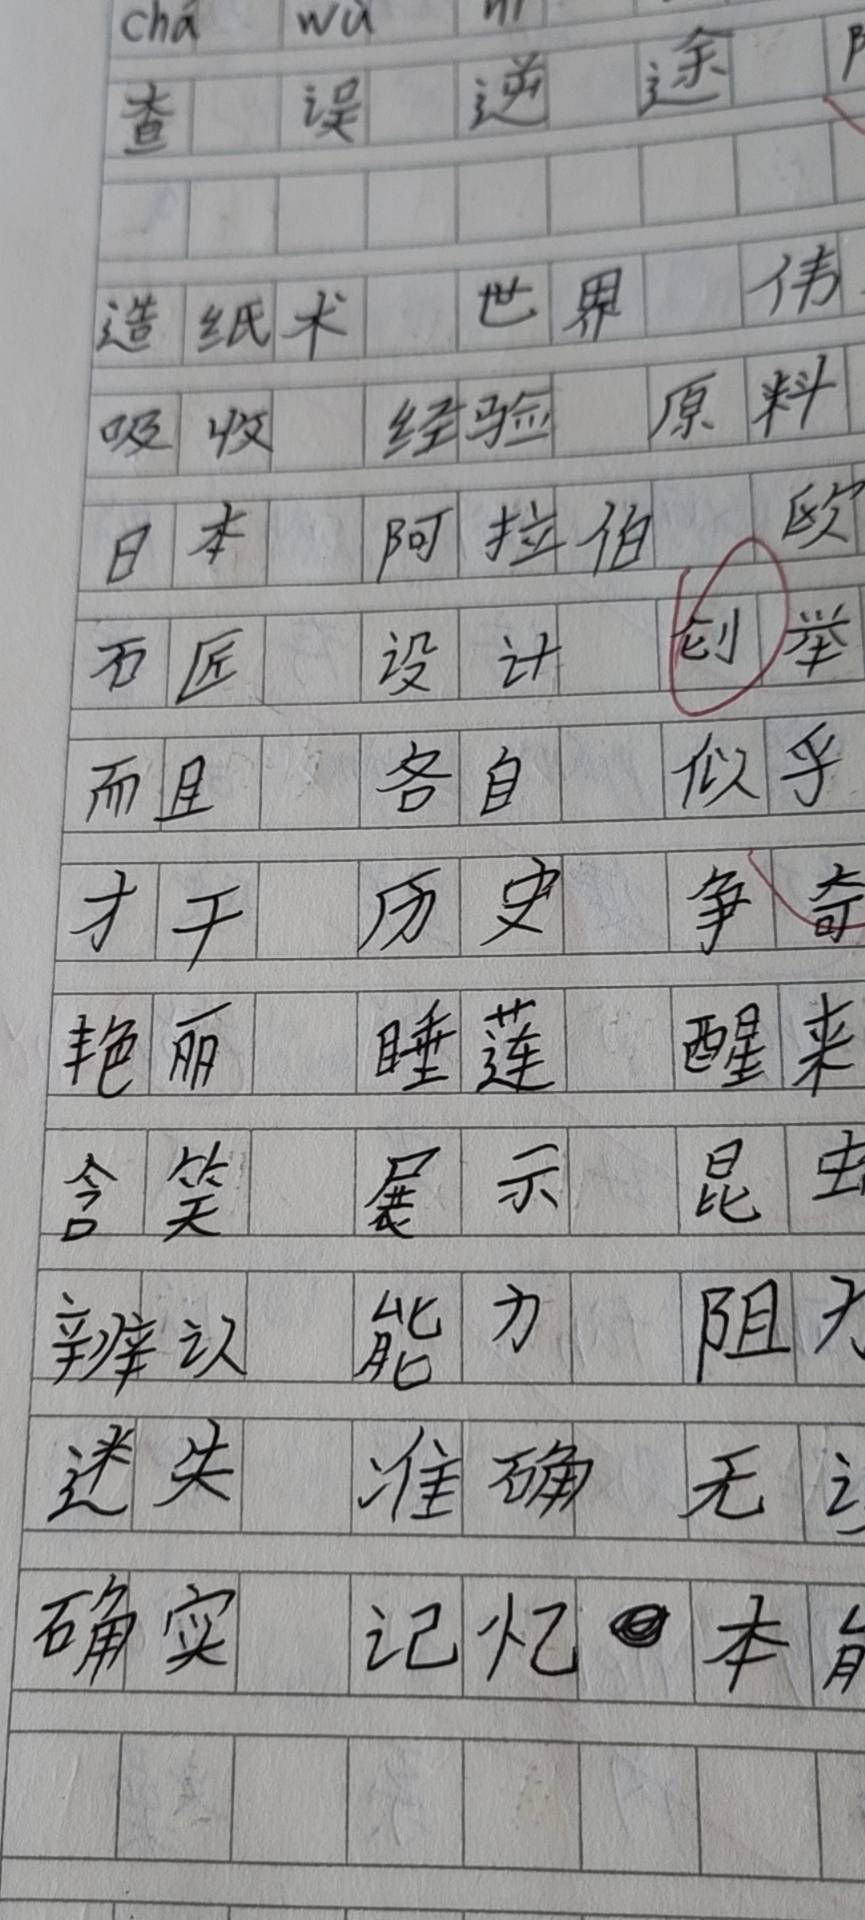 chá wù nì
查 误 逆 途
造纸术 世界 伟
吸收 经验 原料
日本 阿拉伯 欧
石匠 设计 创举
而且 各自 似乎
才干 历史 争奇
艳丽 睡莲 醒来
含笑 展示 昆虫
辨认 能力 阻力
迷失 准确 无
确实 记忆 本能